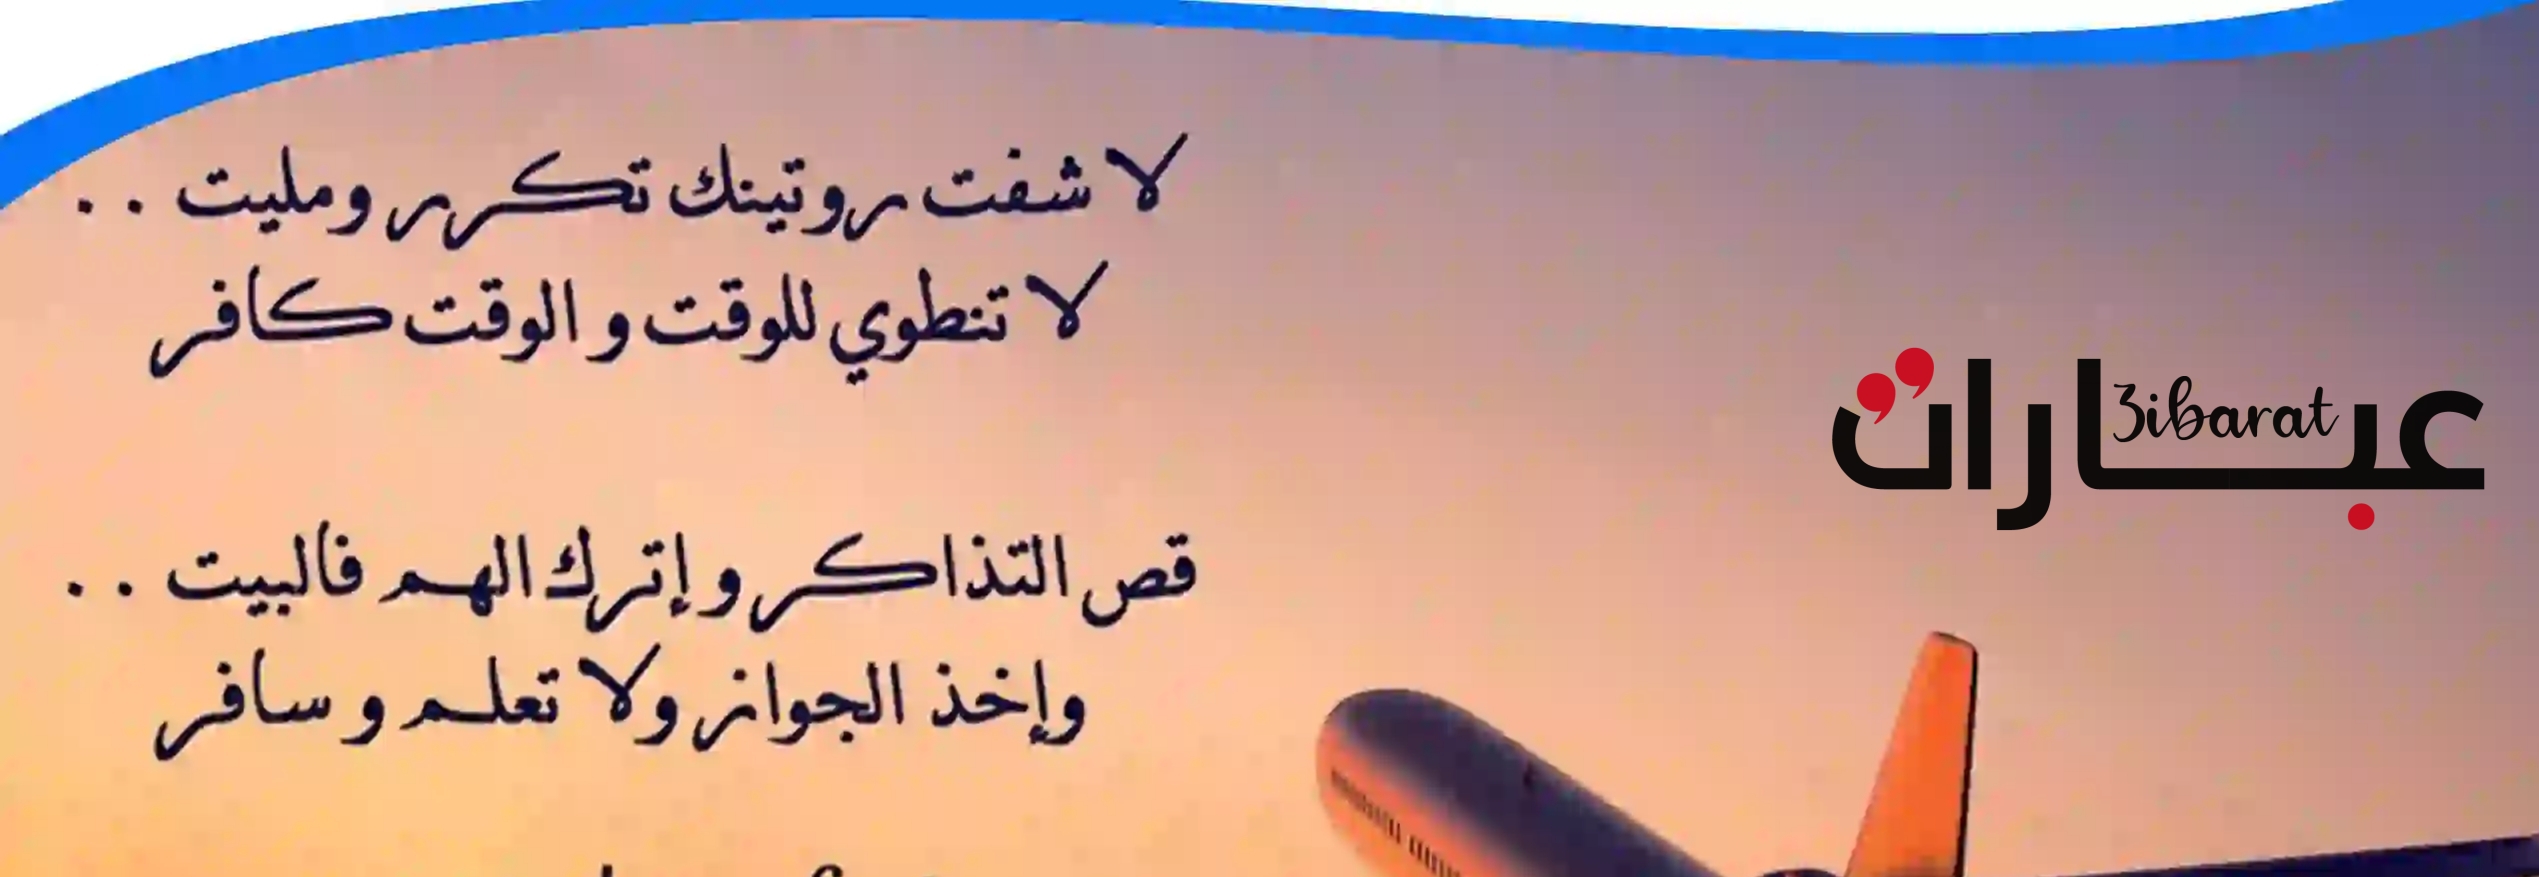 لا شفت روتينك تكرر ومليت ..
لا تنطوي للوقت و الوقت كافر
عبارات
3ibarat
قص التذاكر و إترك الهم فالبيت ..
وإخذ الجواز ولا تعلم و سافر